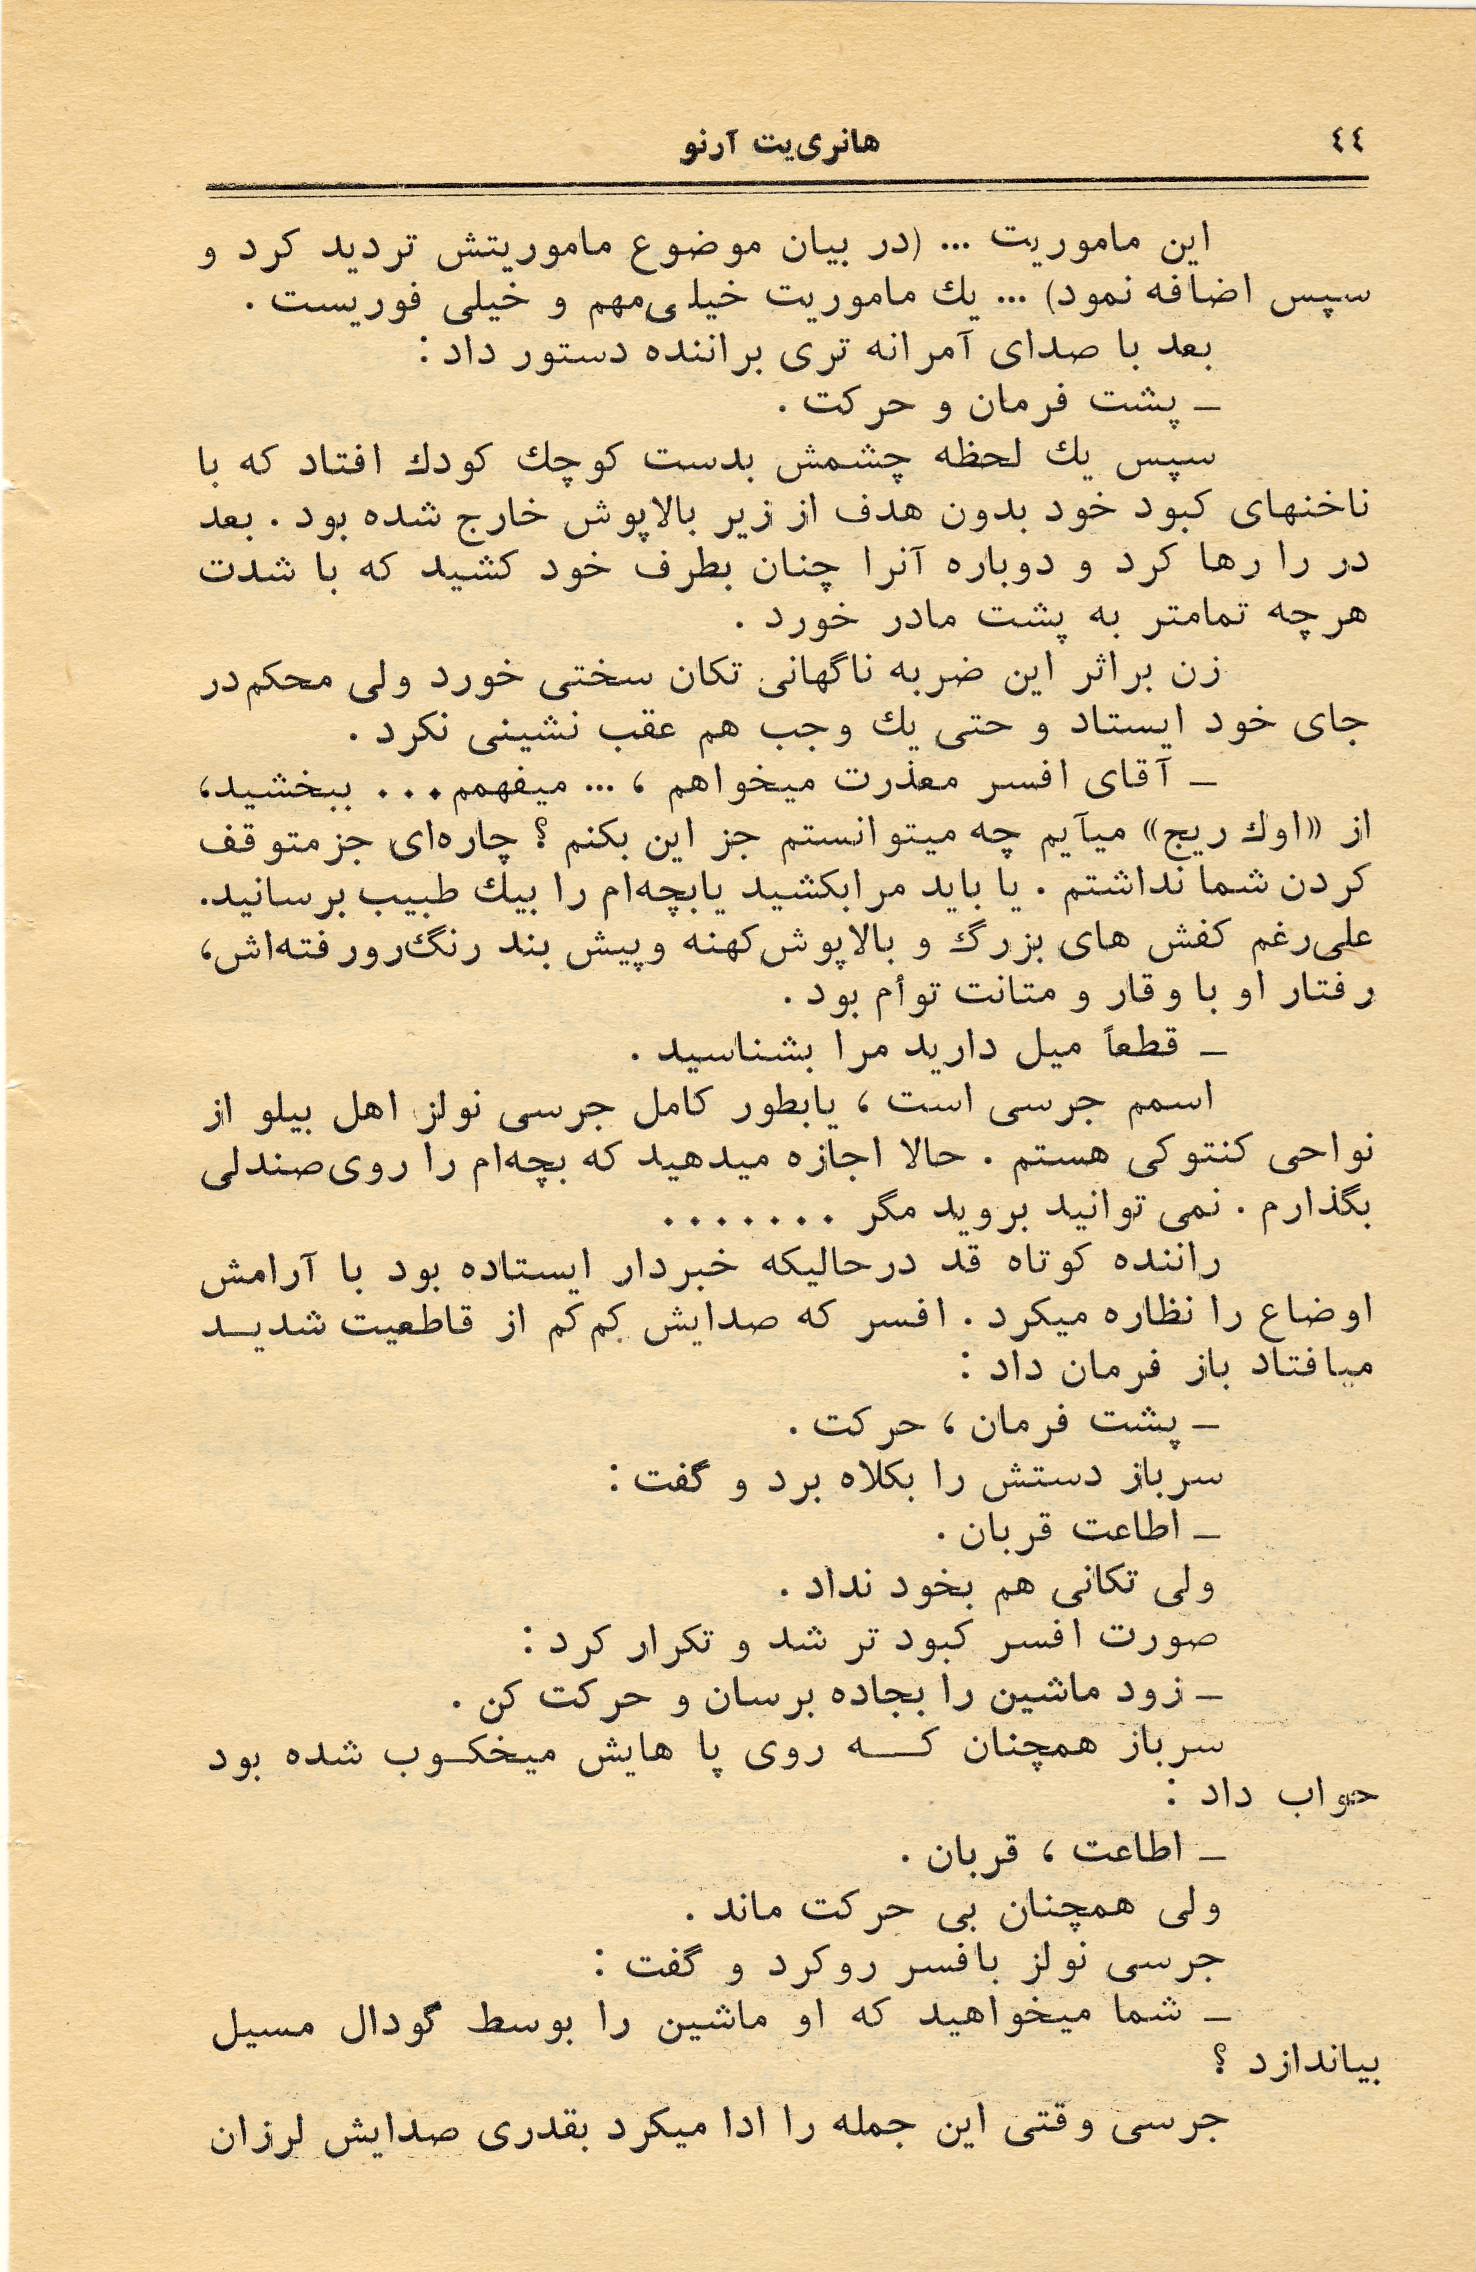 ٤٤
هانری‌یت آرنو
این ماموریت ... (در بیان موضوع ماموریتش تردید کرد و
سپس اضافه نمود) ... یك ماموریت خیلی‌مهم و خیلی فوریست .
بعد با صدای آمرانه تری براننده دستور داد :
ـ پشت فرمان و حرکت .
سپس یك لحظه چشمش بدست کوچك کودك افتاد که با
ناخنهای کبود خود بدون هدف از زیر بالاپوش خارج شده بود . بعد
در را رها کرد و دوباره آنرا چنان بطرف خود کشید که با شدت
هرچه تمامتر به پشت مادر خورد .
زن براثر این ضربه ناگهانی تکان سختی خورد ولی محکم در
جای خود ایستاد و حتی یك وجب هم عقب نشینی نکرد .
ـ آقای افسر معذرت میخواهم ، ... میفهمم ... ببخشید،
از «اوك ریج» میآیم چه میتوانستم جز این بکنم ؟ چاره‌ای جز متوقف
کردن شما نداشتم . یا باید مرا بکشید یا بچه‌ام را بیك طبیب برسانید.
علی‌رغم کفش های بزرگ و بالاپوش کهنه و پیش بند رنگ‌رورفته‌اش،
رفتار او با وقار و متانت توأم بود .
ـ قطعاً میل دارید مرا بشناسید .
اسمم جرسی است ، یا بطور کامل جرسی نولز اهل بیلو از
نواحی کنتوکی هستم . حالا اجازه میدهید که بچه‌ام را روی صندلی
بگذارم . نمی توانید بروید مگر .......
راننده کوتاه قد درحالیکه خبردار ایستاده بود با آرامش
اوضاع را نظاره میکرد . افسر که صدایش کم‌کم از قاطعیت شدیـد
میافتاد باز فرمان داد :
ـ پشت فرمان ، حرکت .
سرباز دستش را بکلاه برد و گفت :
ـ اطاعت قربان .
ولی تکانی هم بخود نداد .
صورت افسر کبود تر شد و تکرار کرد :
ـ زود ماشین را بجاده برسان و حرکت کن .
سرباز همچنان کـــه روی پا هایش میخکـوب شده بود
جواب داد :
ـ اطاعت ، قربان .
ولی همچنان بی حرکت ماند .
جرسی نولز بافسر رو کرد و گفت :
ـ شما میخواهید که او ماشین را بوسط گودال مسیل
بیاندازد ؟
جرسی وقتی این جمله را ادا میکرد بقدری صدایش لرزان